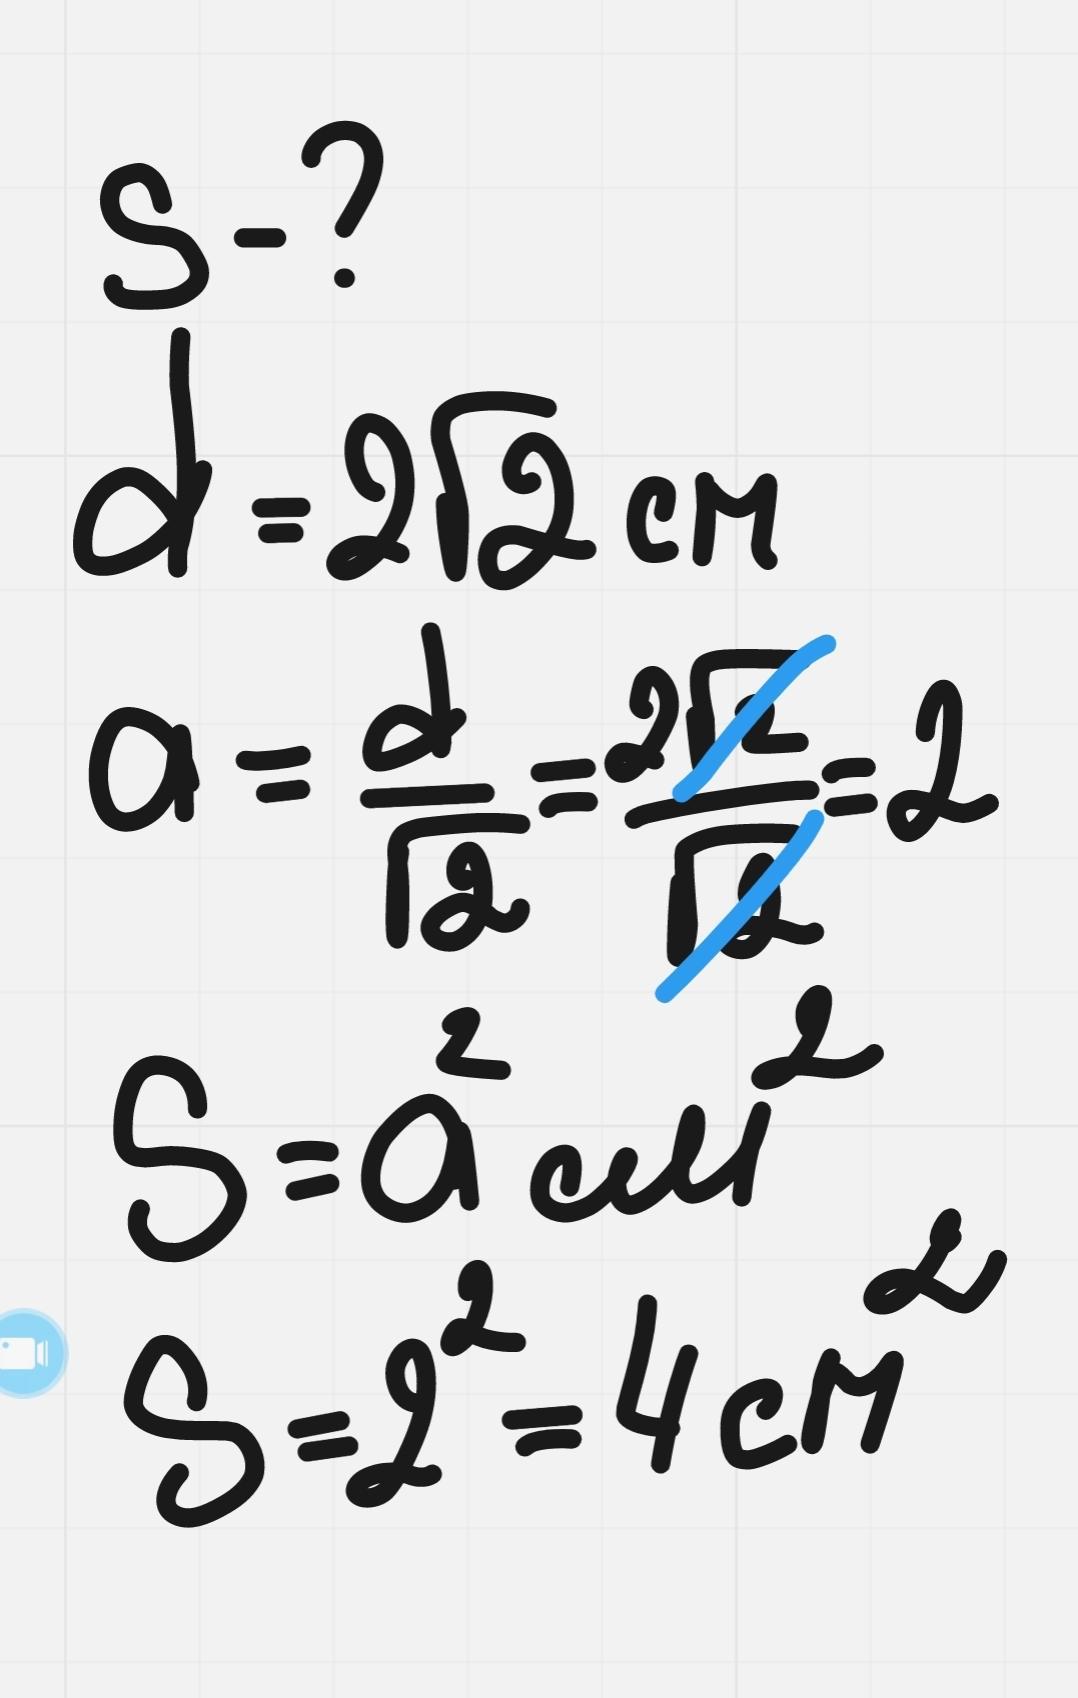 S - ?
d = 2√2 см
a = d/√2 = 2√2/√2 = 2
S = a² см²
S = 2² = 4 см²